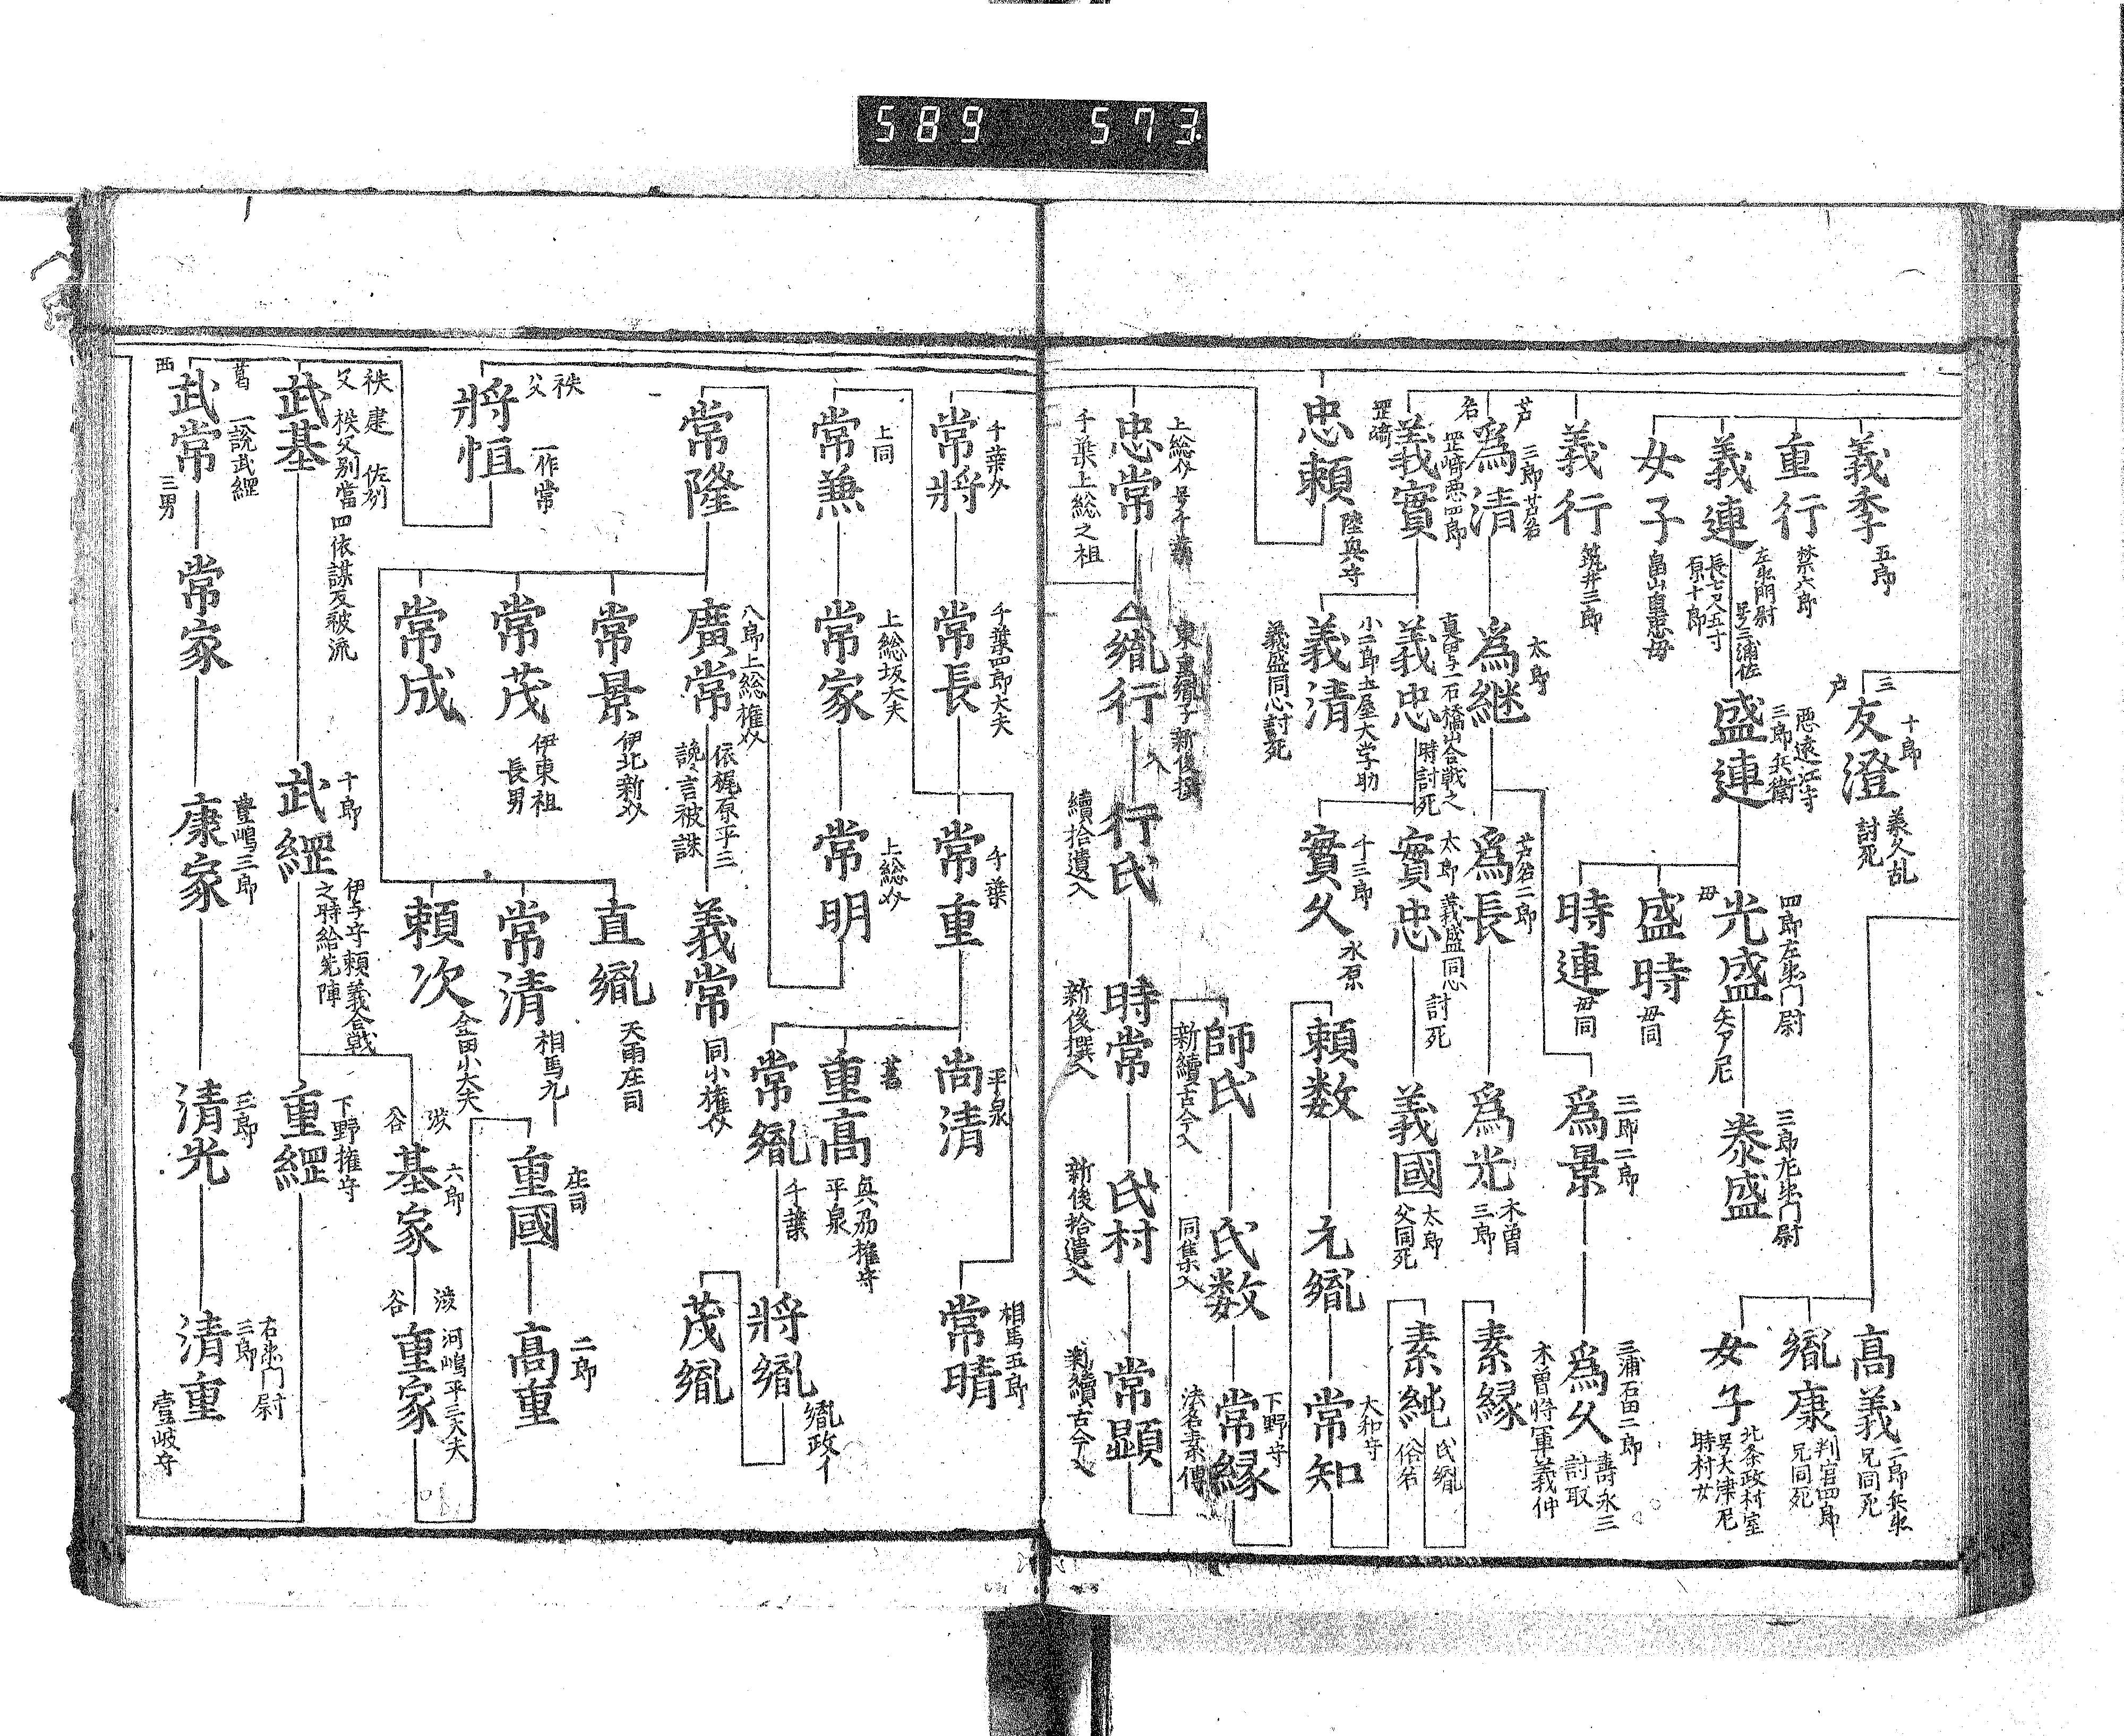 589 573
義季 五郎
重行 禁六郎
義連 左衛門尉 号三浦佐 長七尺五寸 原十郎
女子 畠山重忠母
義行 筑井三郎
芦名 爲清 三郎 芦名
罡崎 義實 罡崎悪四郎
忠頼 陸奥守
忠常 上総介 号千葉
千葉上総之祖
三戸 友澄 十郎 義久乱討死
盛連 悪遠江守 三郎兵衛
爲継 太郎
義忠 真田与一 石橋山合戦之時討死
義清 小二郎 土屋大学助
義盛同心討死
胤行 東重胤子 新後撰入
光盛 四郎左衛門尉 母矢部尼
盛時 母同
時連 母同
爲長 芦名二郎
實忠 太郎 義盛同心討死
實久 十三郎 永原
行氏 續拾遺入
泰盛 三郎左衛門尉
爲景 三郎二郎
爲光 木曽三郎
義國 太郎 父同死
頼数
師氏 新續古今入
時常 新後撰入
高義 二郎兵衛 兄同死
胤康 判官四郎 兄同死
女子 北条政村室 号大津尼 時村女
爲久 三浦石田二郎 壽永三討取木曽將軍義仲
素縁
素純 氏胤 俗名
元胤
常知 大和守
氏数 同集入
常縁 下野守 法名素傳
氏村 新後拾遺入
常顕 新續古今入
常將 千葉介
常兼 上同
常隆
秩父 將恒 一作常
武基 秩父別當
四依謀反被流
葛西 武常 一説武經三男
常長 千葉四郎大夫
常家 上総坂大夫
廣常 八郎上総権介 依梶原平三讒言被誅
常景 伊北新介
常茂 伊東祖 長男
常成
常家
常重 千葉
常明 上総介
義常 同小権介
直胤 天雨庄司
常清 相馬九
頼次 金田小大夫
武經 十郎 伊与守頼義合戦之時給先陣
康家 豊嶋三郎
尚清 平泉
重高 奥州権守 平泉
常胤 千葉
重國 庄司
澁谷 基家 六郎
重經 下野権守
清光 三郎
常晴 相馬五郎
將胤 胤政イ
茂胤
高重 二郎
澁谷 重家 河嶋平三大夫
清重 右衛門尉 三郎 壹岐守